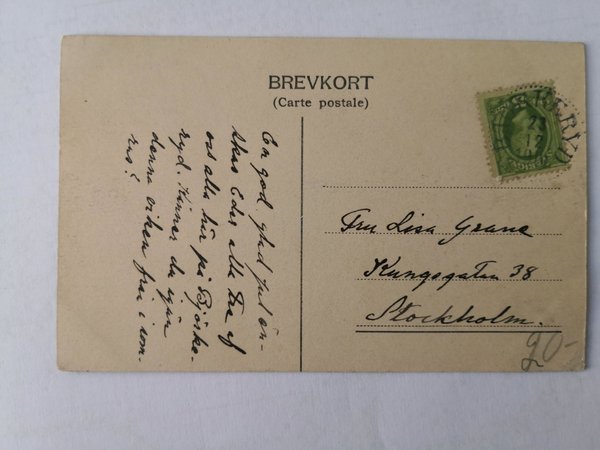 BREVKORT
(Carte postale)
En god glad Jul ön-
skas Eder alla Fra af
oss alla här på Björke-
ryd. Känner du igen
denna viken från i som-
ras?
Fru Lisa Grane
Kungsgatan 38
Stockholm.
20-